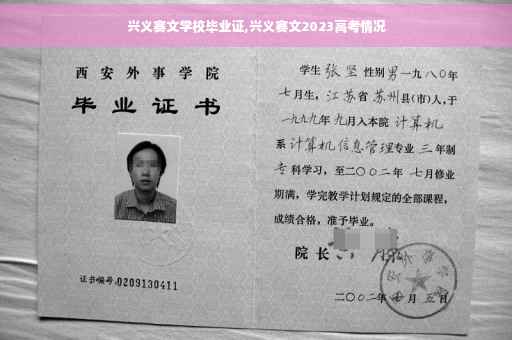 兴义赛文学校毕业证,兴义赛文2023高考情况
西安外事学院
毕业证书
证书编号:0209130411
学生 张坚 性别 男 一九八〇年
七月生, 江苏省 苏州县(市)人,于
一九九九年 九月入本院 计算机
系 计算机信息管理专业 三 年制
专 科学习, 至二〇〇二年 七月修业
期满, 学完教学计划规定的全部课程,
成绩合格, 准予毕业。
院长
二〇〇二年 月 五 日